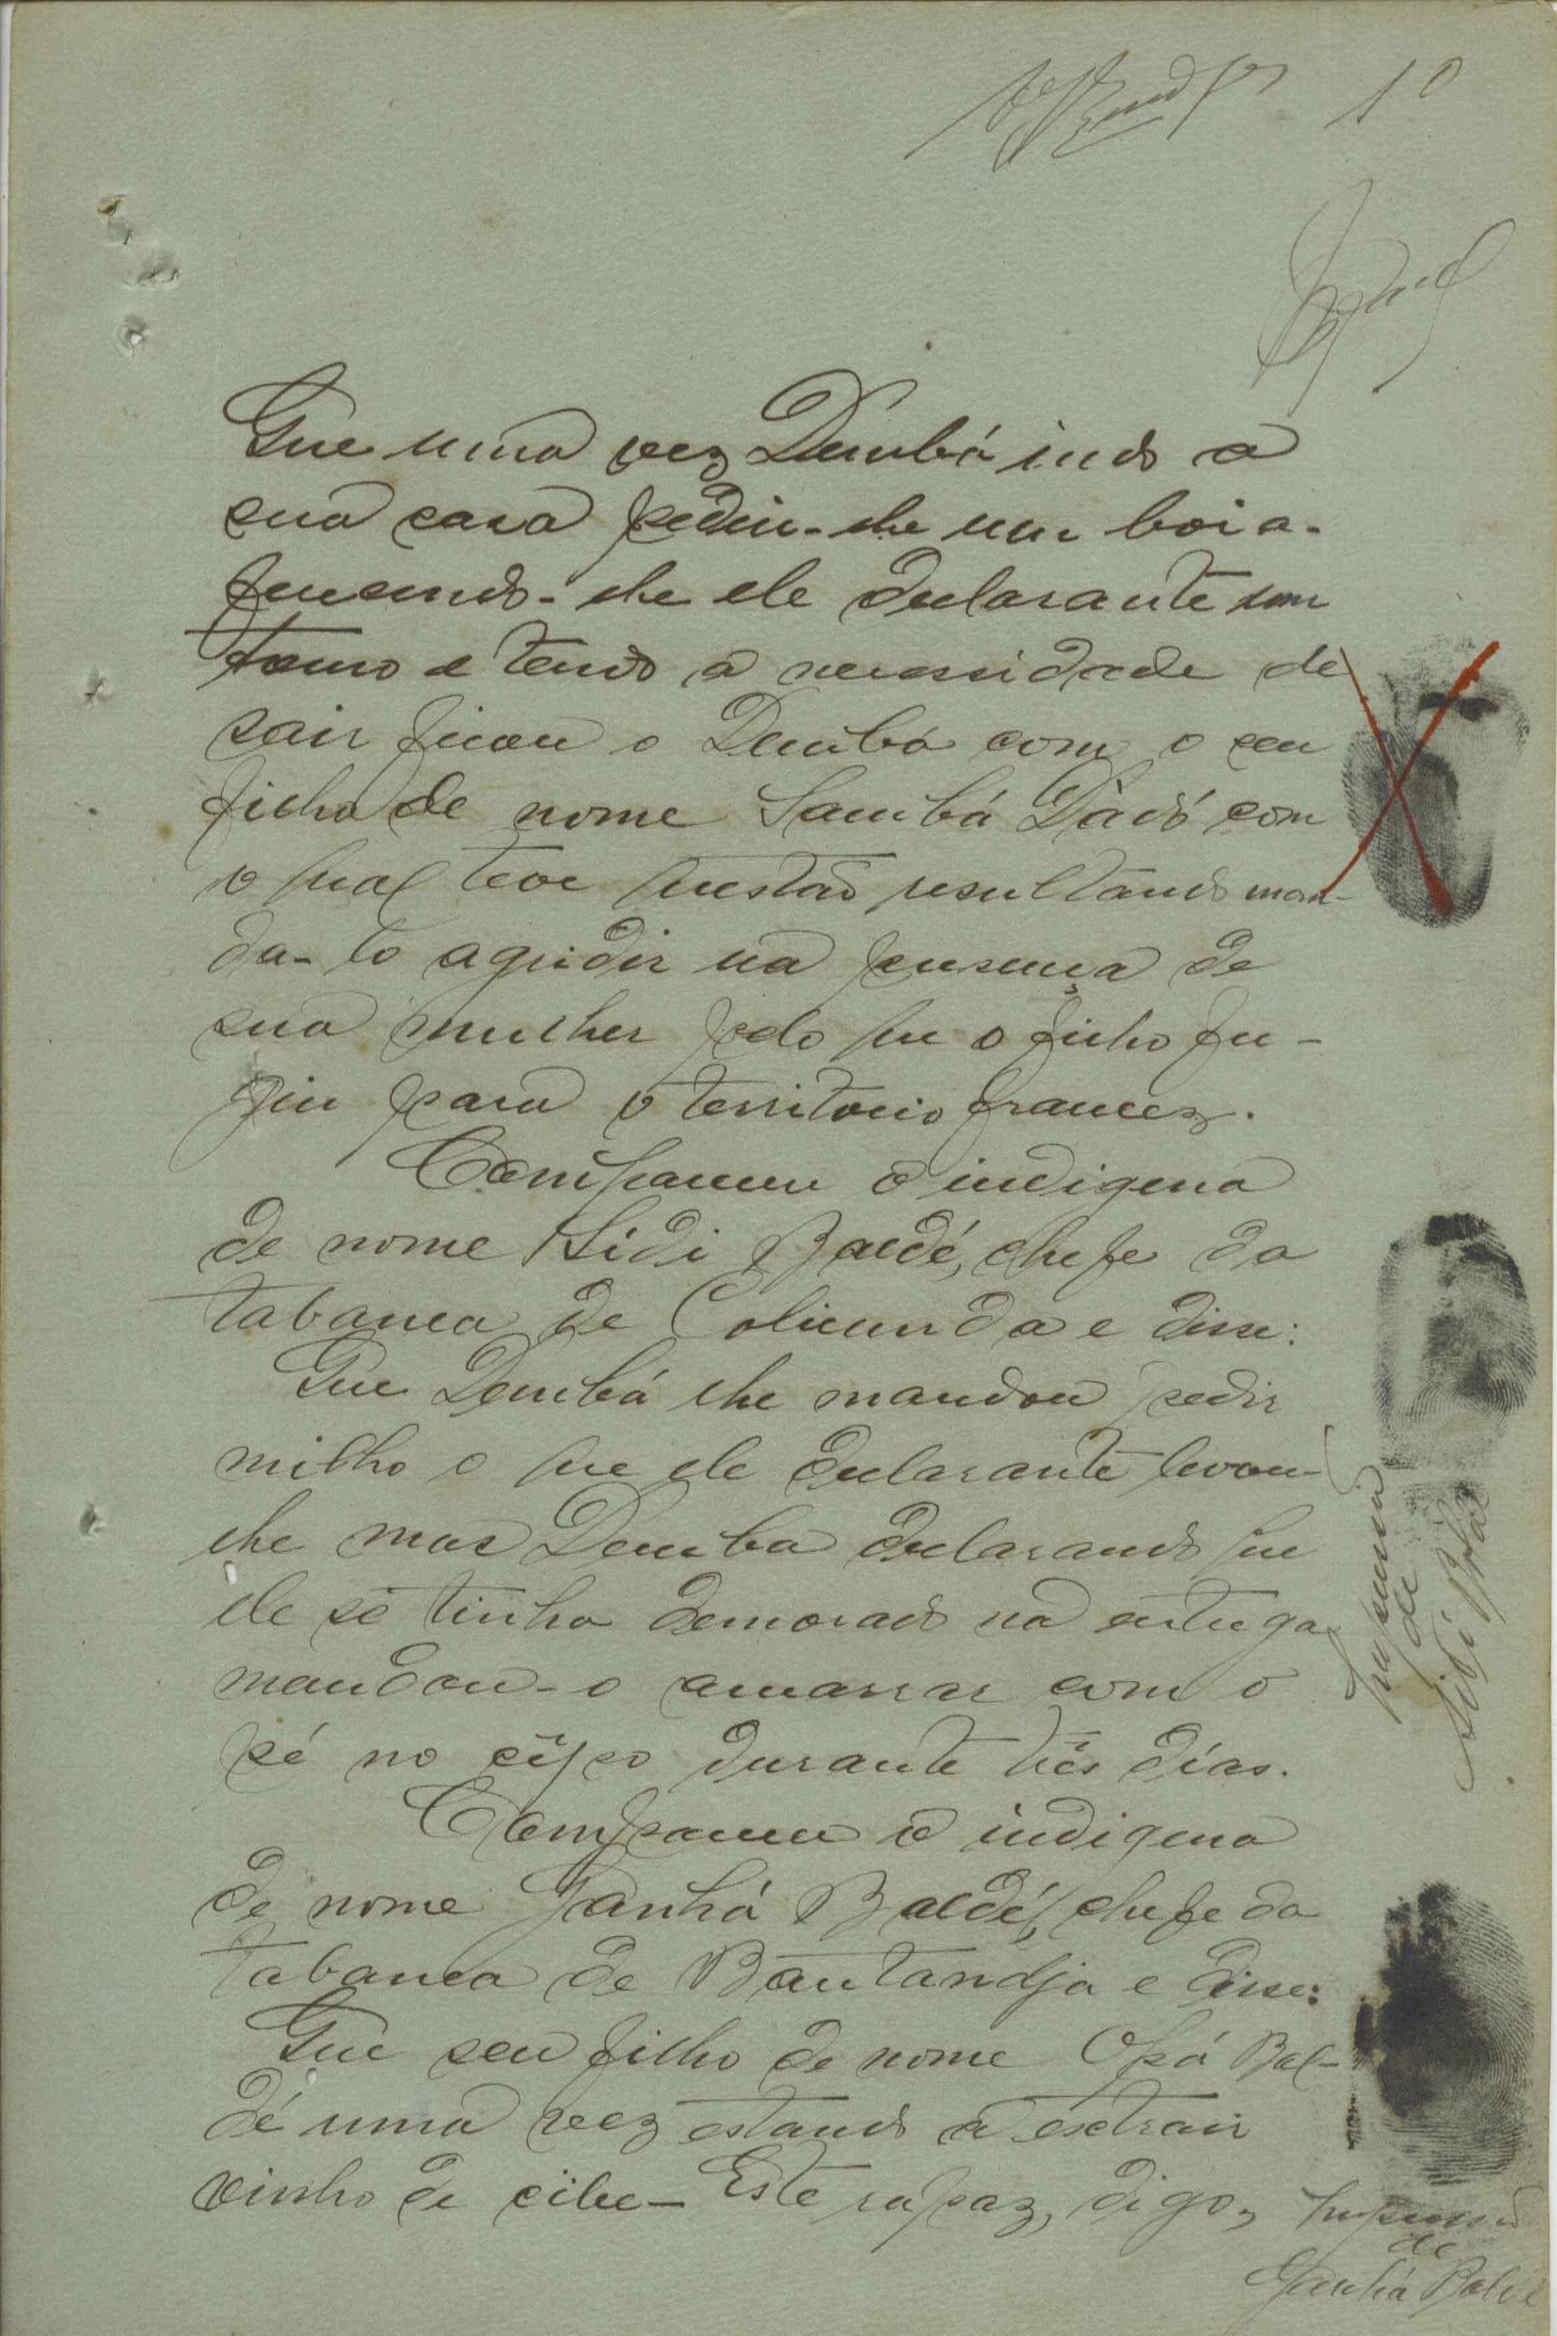 10
Que uma vez Dembá indo a
sua casa pediu-lhe um boi o-
ferecendo-lhe ele declarante um
touro e tendo a necessidade de
sair ficou o Dembá com o seu
filho de nome Sambá Dadó com
o qual teve questão resultando man-
da-lo agredir na presença de
sua mulher pelo que o filho fu-
giu para o territorio francez.
Compareceu o indigena
de nome Sidi Baldé, chefe da
tabanca de Colicunda e disse:
Que Dembá lhe mandou pedir
milho o que ele declarante levou-
lhe mas Demba declarando que
ele se tinha demorado na entrega
mandou-o amarrar com o
pé no cêpo durante três días.
Compareceu o indigena
de nome Ganhá Baldé, chefe da
tabanca de Bantandja e disse:
Que seu filho de nome Opá Bal-
dé uma vez estando a extrair
vinho de cibe- Este rapaz, digo,
Impressão
de
Sidi Baldé
Impressão
de
Ganhá Baldé